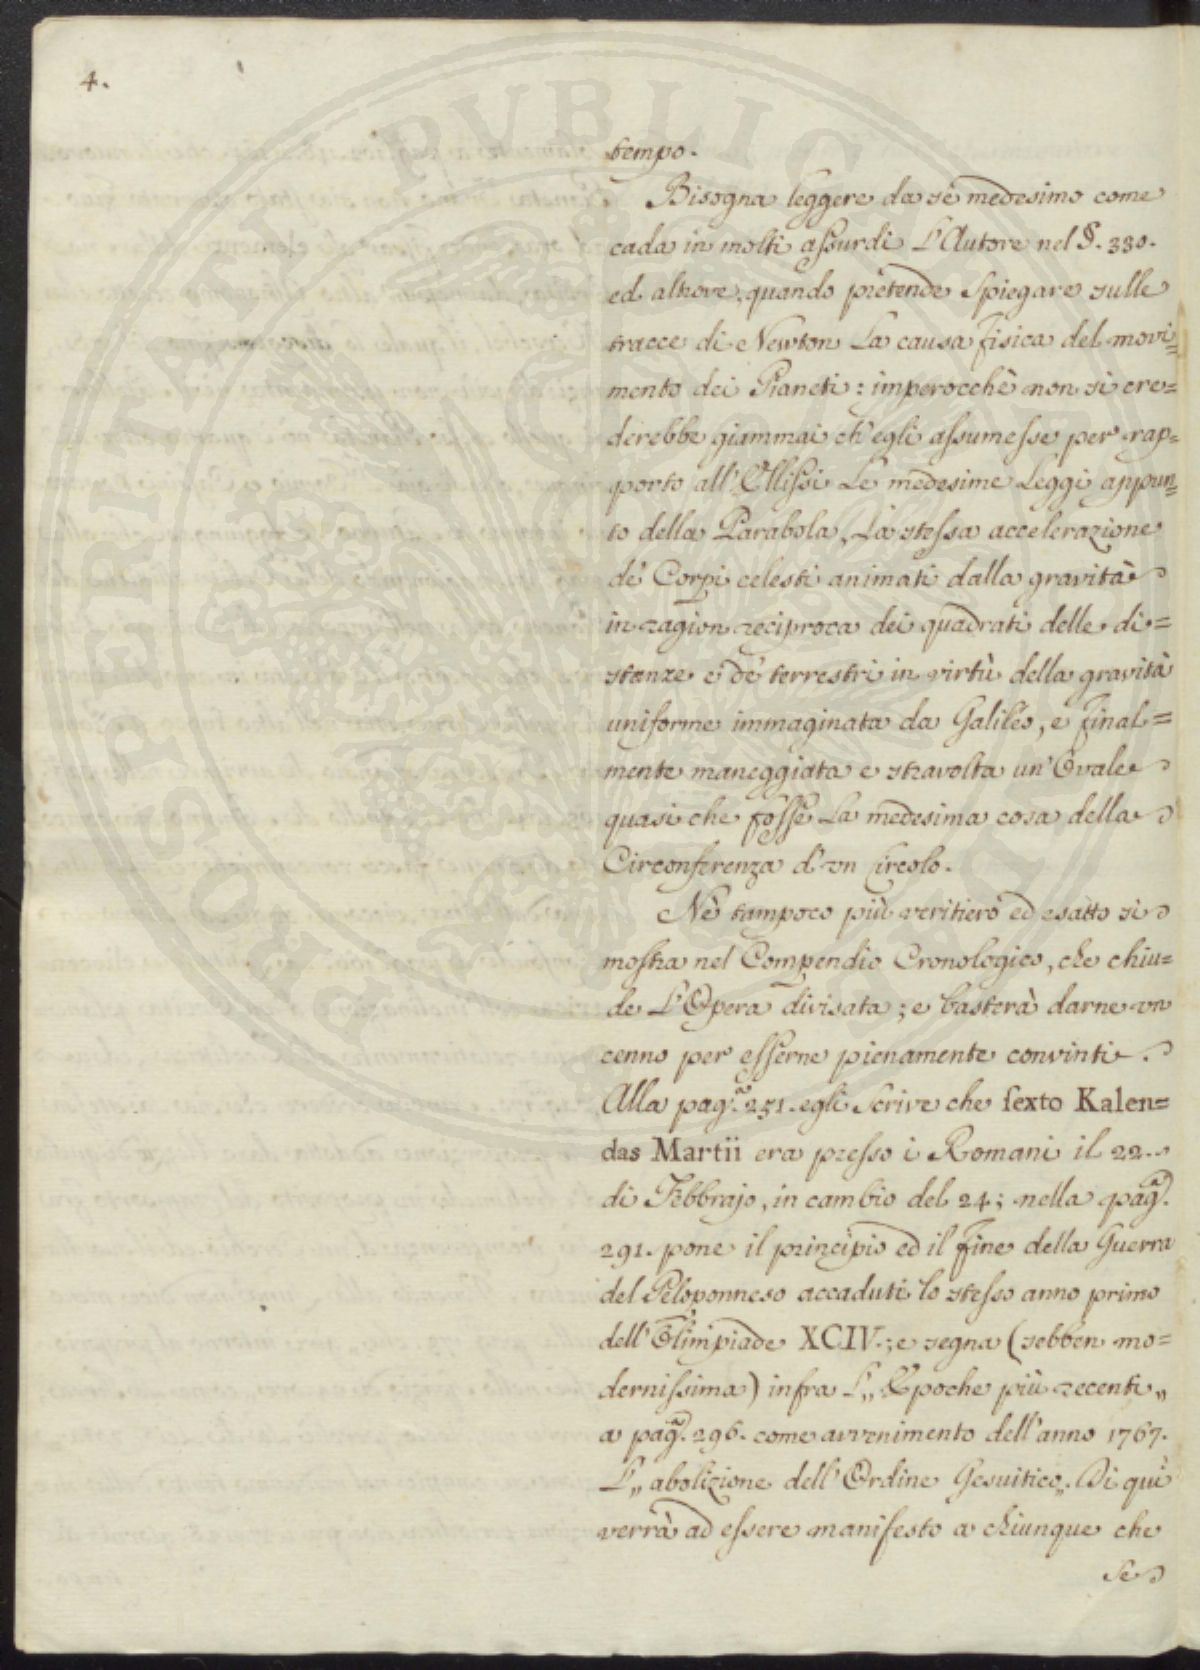 4.
tempo.
Bisogna leggere da sè medesimo come
cada in molti assurdi L'Autore nel §. 330.
ed altrove, quando pretende Spiegare sulle
tracce di Newton La causa fisica del movi=
mento dei Pianeti: imperocchè non si cre=
derebbe giammai ch'egli assumesse per rap=
porto all'Ellissi Le medesime Leggi appun=
to della Parabola, La stessa accelerazione
de' Corpi celesti animati dalla gravità
in ragion reciproca dei quadrati delle di=
stanze e de' terrestri in virtù della gravità
uniforme immaginata da Galileo, e final=
mente maneggiata e stravolta un'Ovale
quasi che fosse La medesima cosa della
Circonferenza d'un Circolo.
Nè tampoco più veritiero ed esatto si
mostra nel Compendio Cronologico, che chiu=
de L'Opera divisata; e basterà darne un
cenno per esserne pienamente convinti.
Alla pag.ª 251. egli Scrive che sexto Kalen=
das Martii era presso i Romani il 22.
di Febbrajo, in cambio del 24; nella pag.ª
291. pone il principio ed il fine della Guerra
del Peloponneso accaduti lo stesso anno primo
dell'Olimpiade XCIV.; e segna (sebben mo=
dernissima) infra L'„Epoche più recenti„
a pag.ª 296. come avvenimento dell'anno 1767.
L'„abolizione dell'Ordine Gesuitico„. Di quì
verrà ad essere manifesto a chiunque che
se
PROSPERITATI PVBLICAE